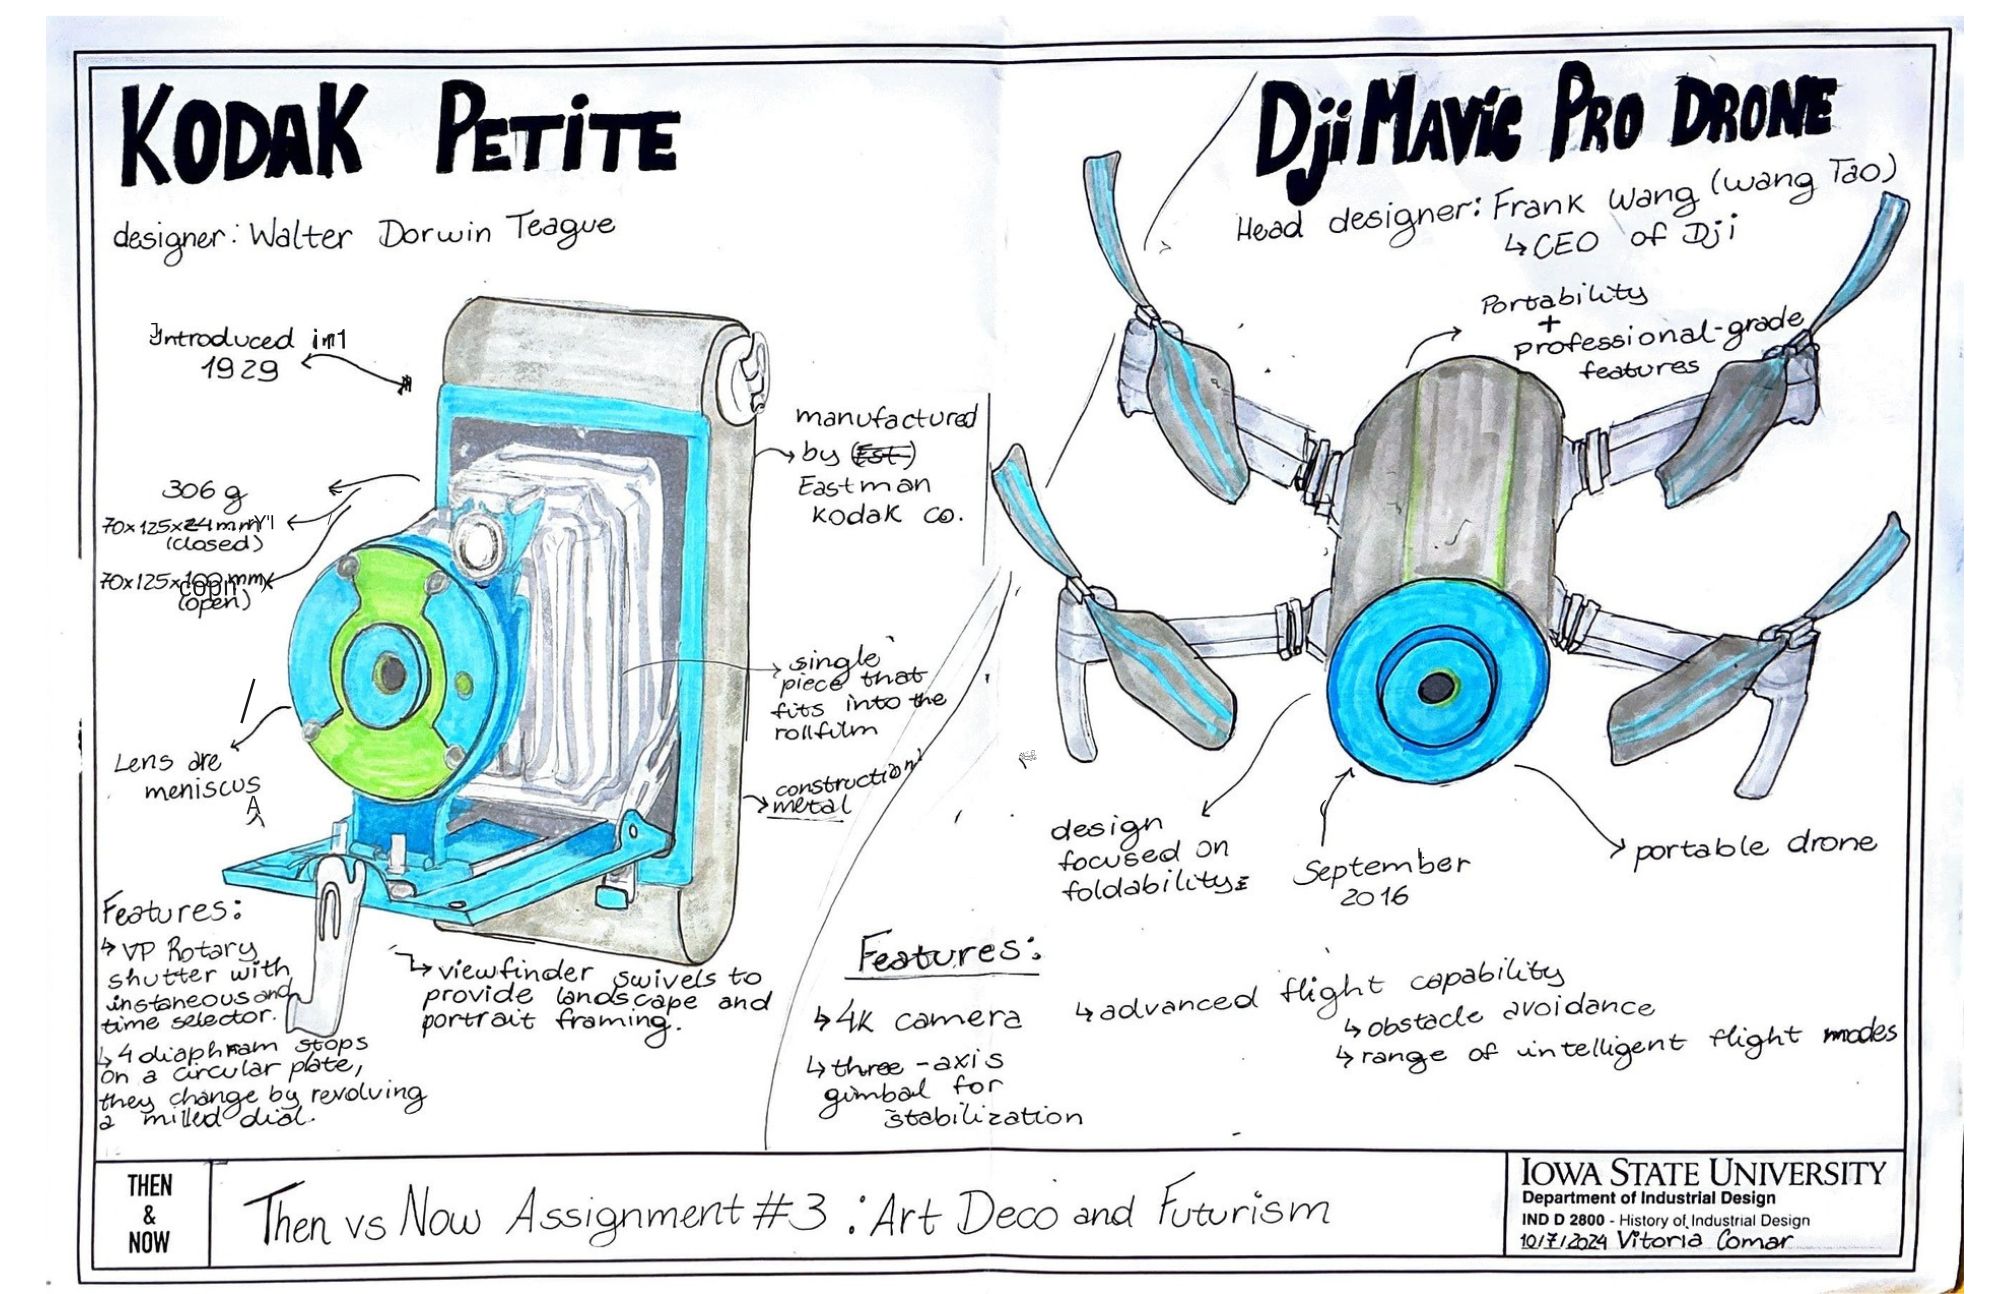 KODAK PETITE
designer: Walter Dorwin Teague
Introduced in
1929
306 g
70x125x24mm
(closed)
70x125x100mm
(open)
manufactured
by (Est)
Eastman
Kodak co.
single
piece that
fits into the
rollfilm
construction
metal
Lens are
meniscus
Features:
↳ VP Rotary
shutter with
instaneous and
time selector.
↳ 4 diaphram stops
on a circular plate,
they change by revolving
a milled dial.
↳ viewfinder swivels to
provide landscape and
portrait framing.
Dji Mavic Pro Drone
Head designer: Frank Wang (Wang Tao)
↳ CEO of Dji
Portability
+
professional-grade
features
design
focused on
foldability
September
2016
portable drone
Features:
↳ 4K camera
↳ three-axis
gimbal for
stabilization
↳ advanced flight capability
↳ obstacle avoidance
↳ range of intelligent flight modes
THEN
&
NOW
Then vs Now Assignment #3: Art Deco and Futurism
IOWA STATE UNIVERSITY
Department of Industrial Design
IND D 2800 - History of Industrial Design
10/7/2024 Vitoria Comar